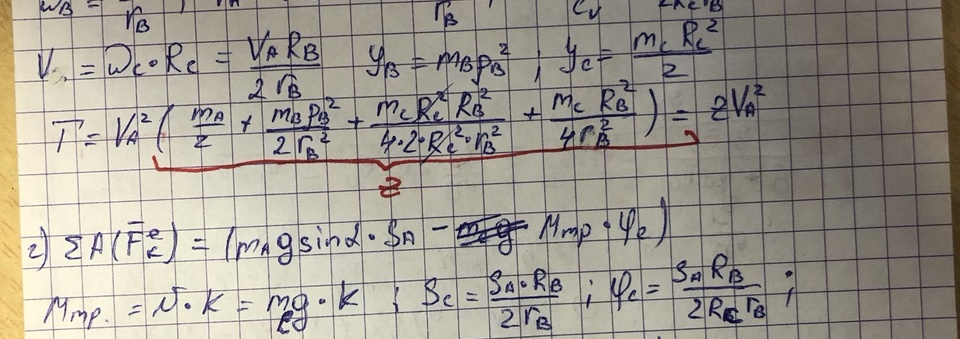 ω_B = / r_B ; r_B
V = ω_C · R_C = V_A R_B / 2 r_B   y_B = m_B ρ_B² ; y_C = m_C R_C² / 2
T = V_A² ( m_A / 2 + m_B ρ_B² / 2 r_B² + m_C R_C² R_B² / 4·2·R_C²·r_B² + m_C R_B² / 4 r_B² ) = z V_A²
z
г) ΣA(F̄_k^e) = (m_A g sin α · S_A − M_тр · φ_C)
M_тр. = N · K = m_C g · K ; S_C = S_A · R_B / 2 r_B ; φ_C = S_A R_B / 2 R_C r_B ;